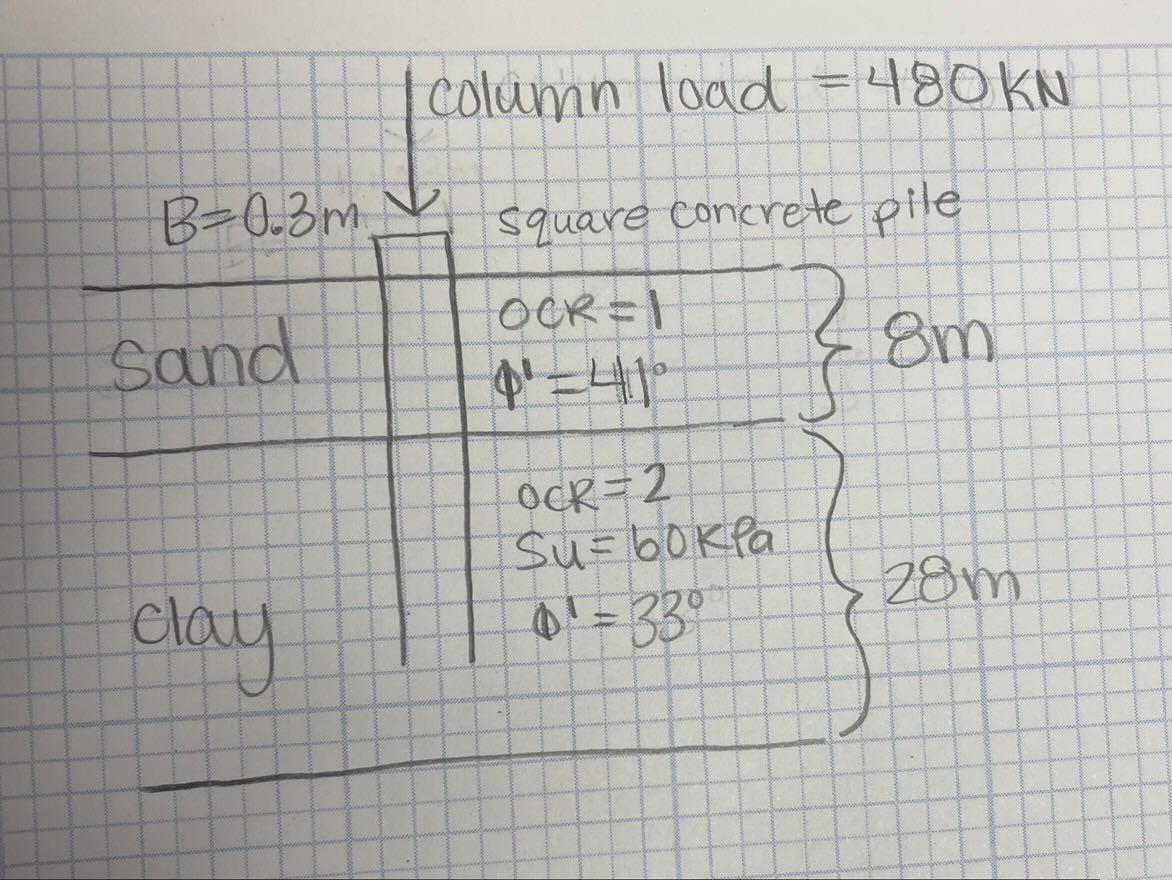 column load = 480KN
B=0.3m
square concrete pile
OCR=1
sand
Φ'=41°
8m
OCR=2
Su=60KPa
28m
clay
Φ'=33°